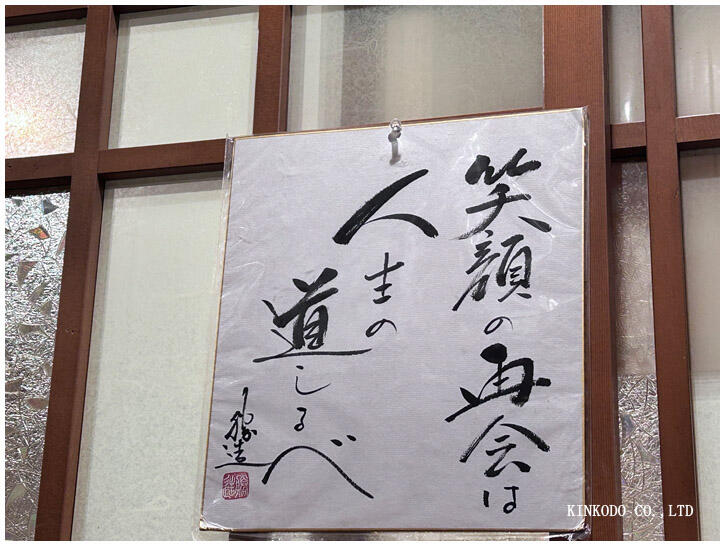 笑顔の再会は
人生の
道しるべ
KINKODO CO., LTD